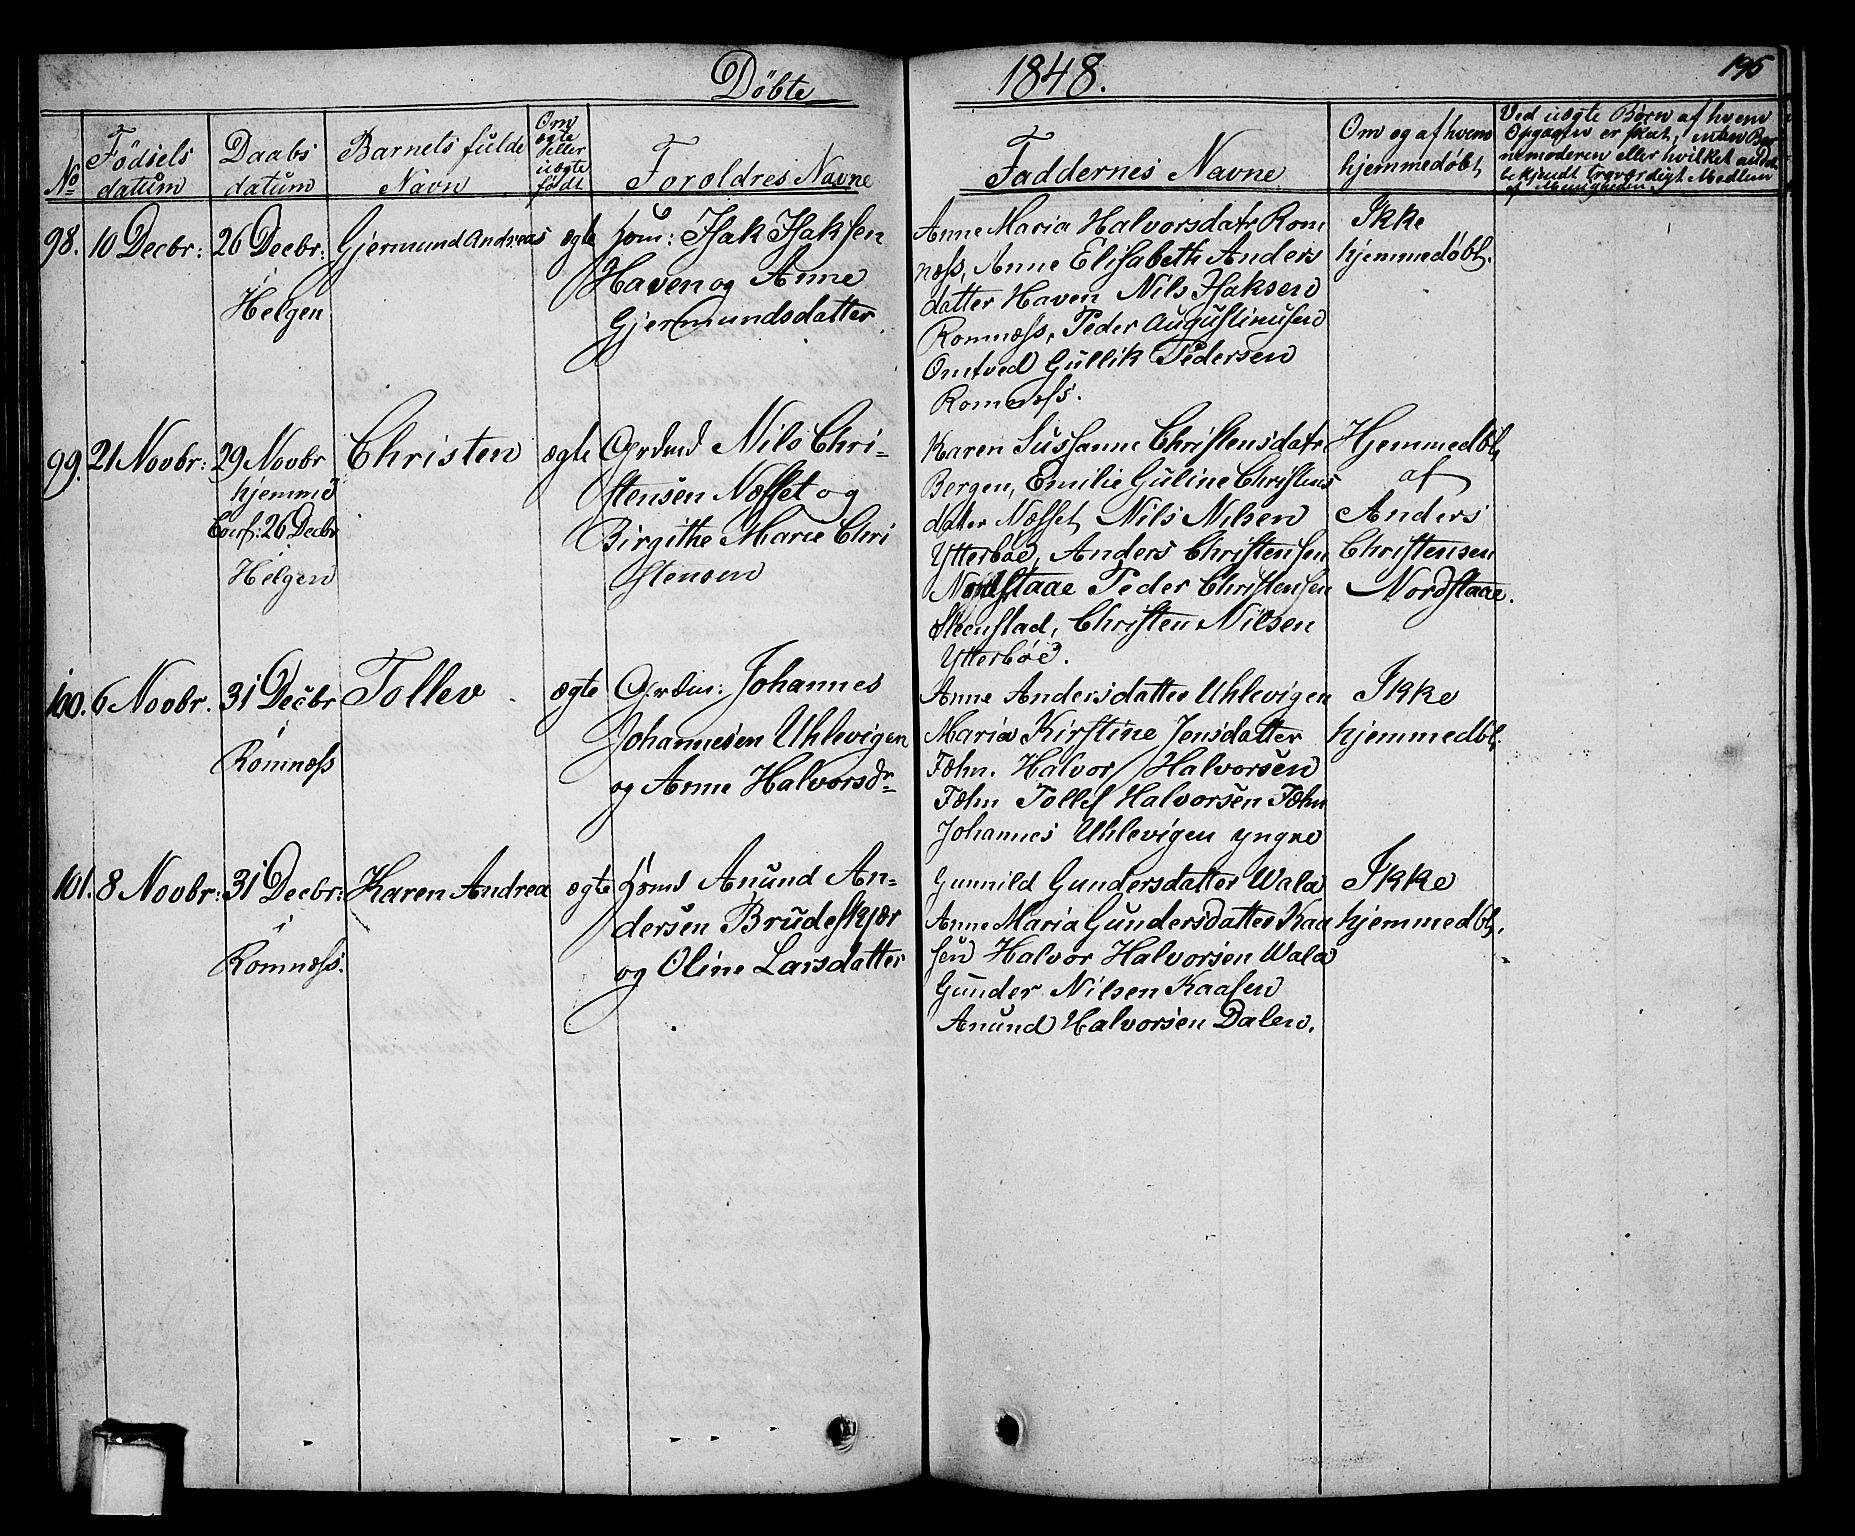 Döbte 1848. 195
No
Födsels datum
Daabs datum
Barnets fulde Navn
Om ægte eller uægte født
Foroldres Navne
Faddernes Navne
Om og af hvem hjemmedøbt
Ved uægte Børn af hvem
Opgagen er skeet, enten Bar
nemoderen eller hvilket andet
bekjendt troværdigt Medlem
af Menigheden.
98. 10 Decbr: 26 Decbr: i Helgen
Gjermund Andreas
ægte
Huusm: Isak Isaksen
Haven og Anne
Gjermundsdatter
Anne Maria Halvorsdatr Rom
næss, Anne Elisabeth Anders
datter Haven Nils Isaksen
Romnæss, Peder Augustinusen
Omtved Gullik Pedersen
Romnæss.
Ikke
hjemmedøbt.
99. 21 Novbr: 29 Novbr
hjemme
Conf: 26 Decbr
i
Helgen
Christen
ægte
Grdmd Nils Chri-
stensen Næsset og
Birgithe Marie Chri
stensen
Karen Susanne Christensdatr
Bergen, Emilie Guline Christens
dater Næsset, Nils Nilsen
Ytterböe, Anders Christensen
Nordstaae Peder Christensen
Steenstad, Christen Nilsen
Ytterböe.
Hjemmedbt,
af
Anders
Christensen
Nordstaae.
100. 6 Novbr. 31 Decbr
i
Romnæss
Tollev
ægte
Grdm: Johannes
Johannesen Uhlevigen
og Anne Halvorsdr
Anne Andersdatter Uhlevigen
Maria Kirstine Jensdatter
Fæhn. Halvor Halvorsen
Fæhn Tollef Halvorsen Fæhn
Johannes Uhlevigen yngre
Ikke
hjemmedbt.
101. 8 Novbr: 31 Decbr:
i
Romnæss.
Karen Andrea
ægte
Huusmd Anund An-
dersen Brudeskjær
og Oline Larsdatter
Gunnild Gundersdatter Wala
Anne Maria Gundersdatter Kaa
sen Halvor Halvorsen Wala
Gunder Nilsen Kaasen
Anund Halvorsen Dalen.
Ikke
hjemmedbt,